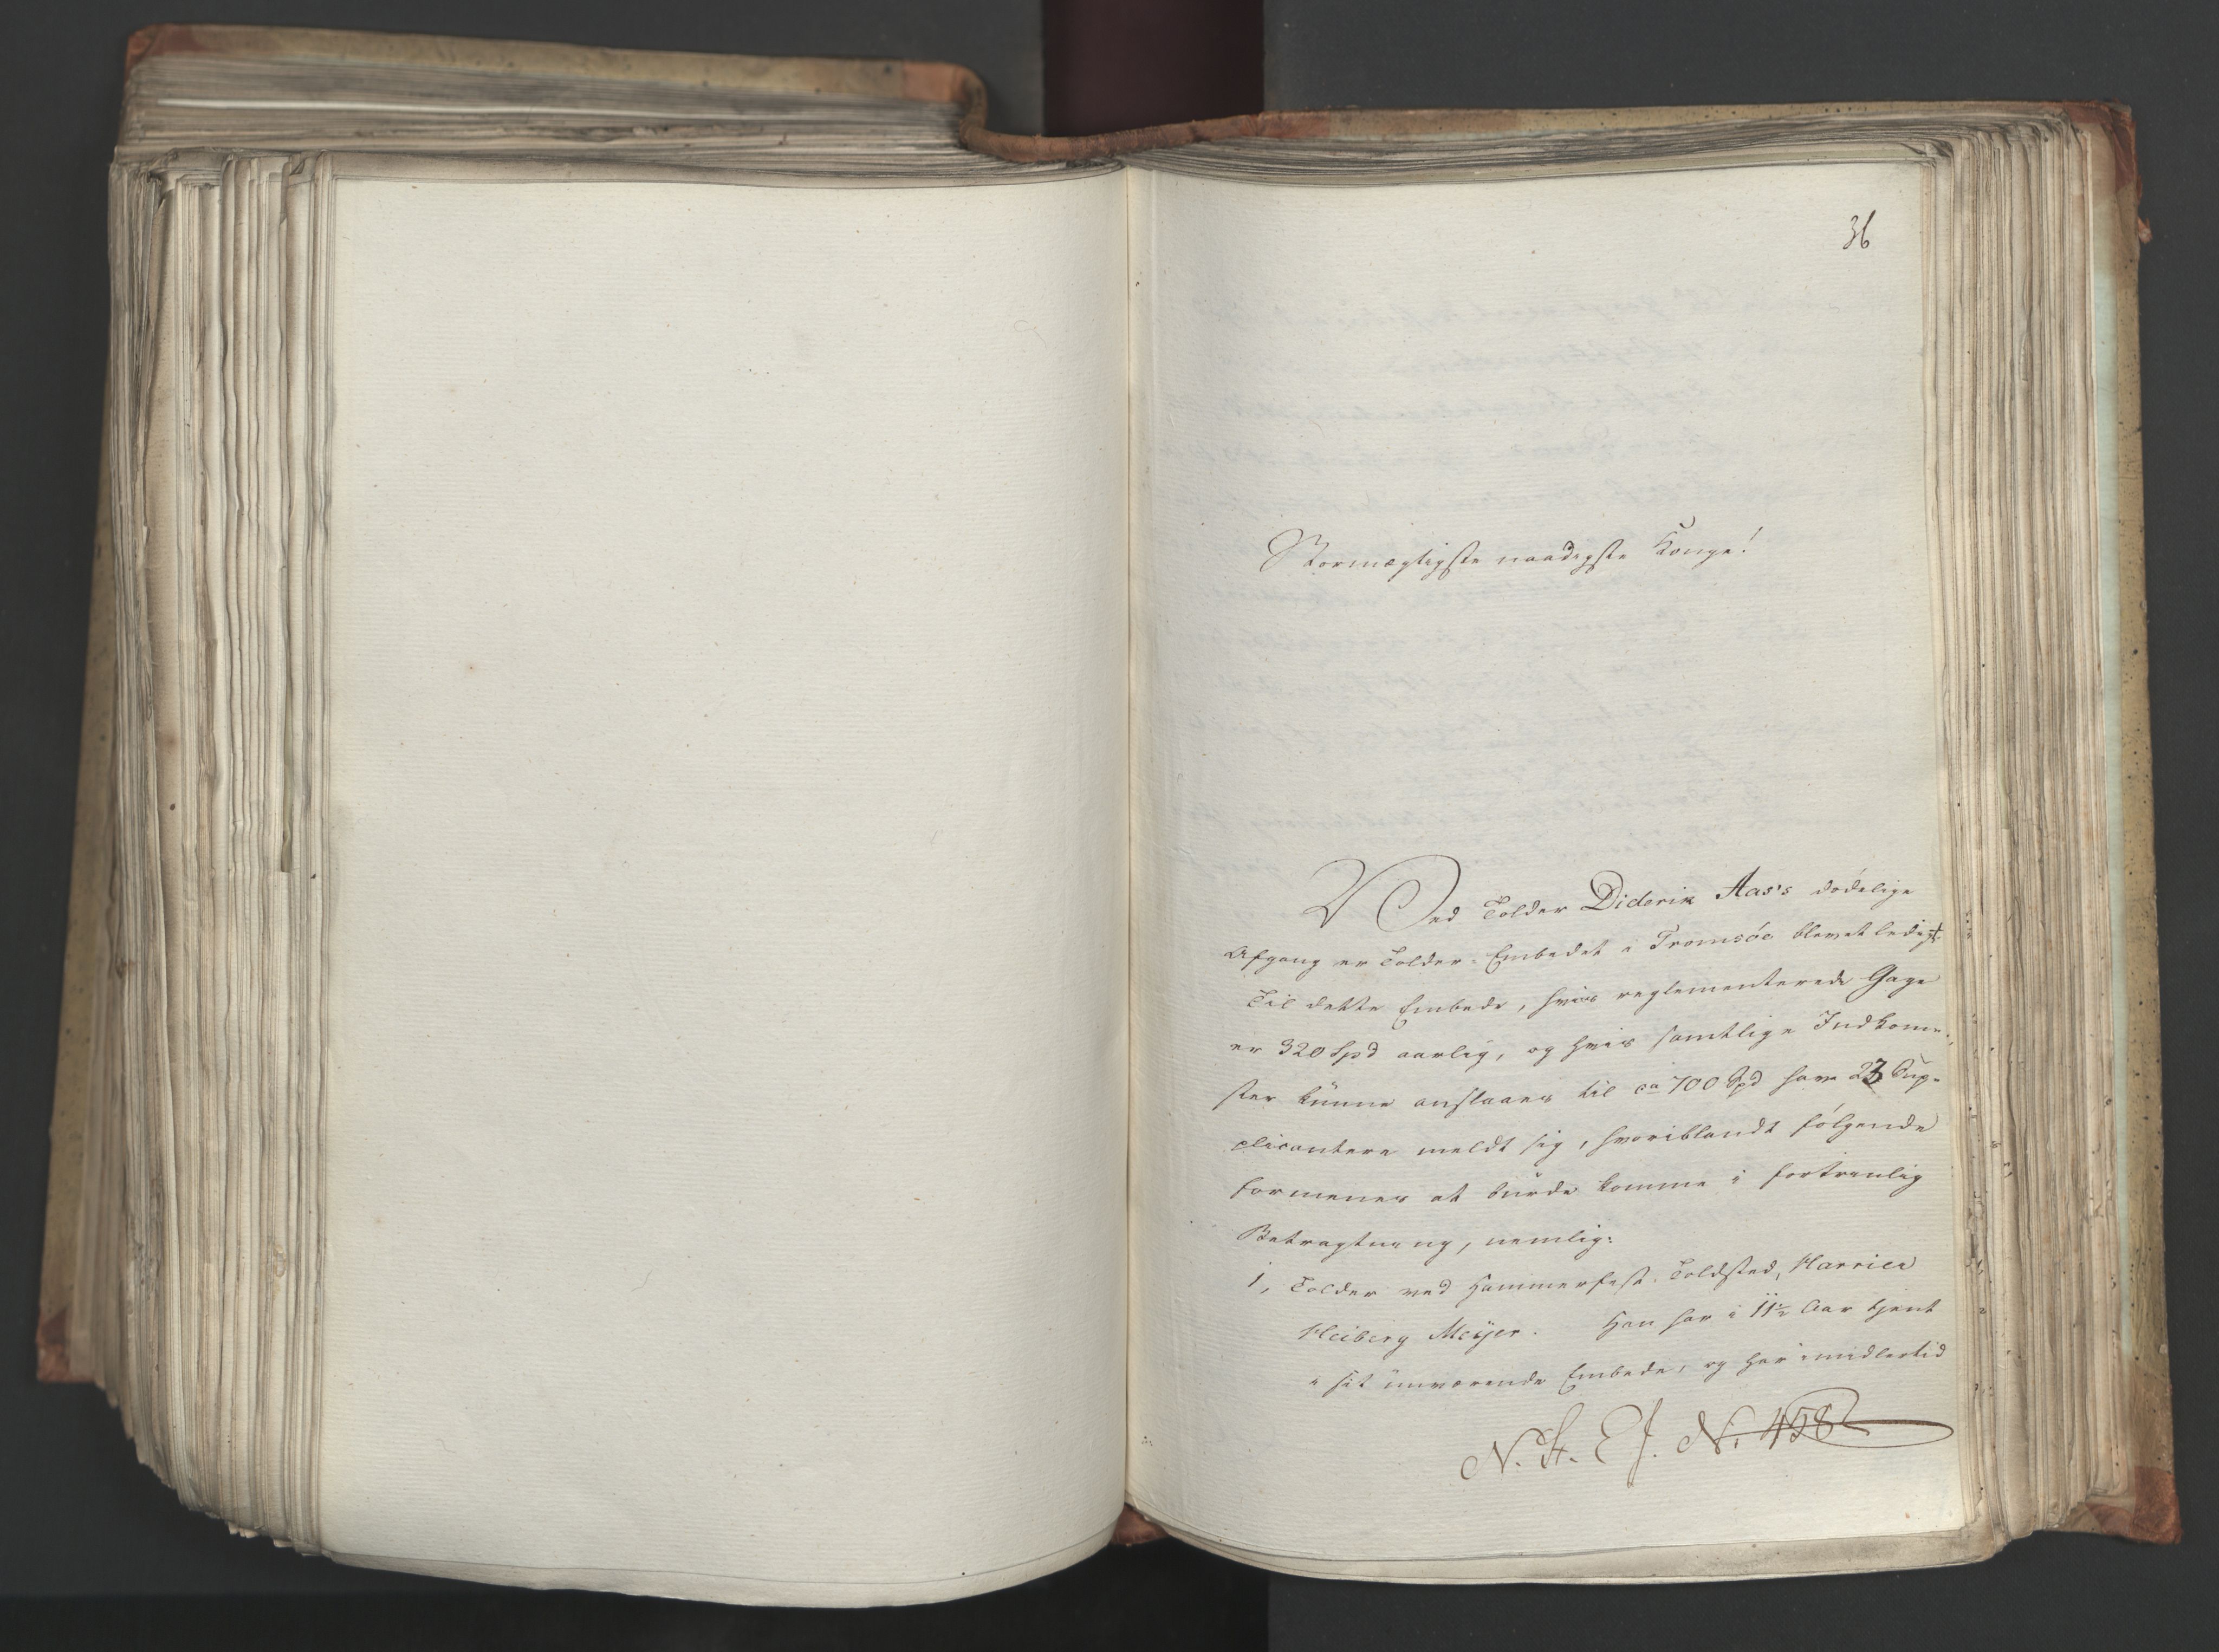 36
Stormægtigste naadigste Konge!
Ved Tolder Diderik Aas's dødelige
Afgang er Tolder-Embedet i Tromsøe blevet ledigt.
Til dette Embede, hvis reglementerede Gage
er 320 Spd aarlig, og hvis samtlige Indkom-
ster kunne anslaaes til ca 700 Spd have 23 Sup-
plicantere meldt sig, hvoriblandt følgende
formenes at burde komme i fortrinlig
Betragtning, nemlig:
1, Tolder ved Hammerfest Toldsted,
Heiberg Meyer. Han har i 11½ Aar tjent
i sit nuværende Embede, og har imidlertid
N. St. E J. No. 458